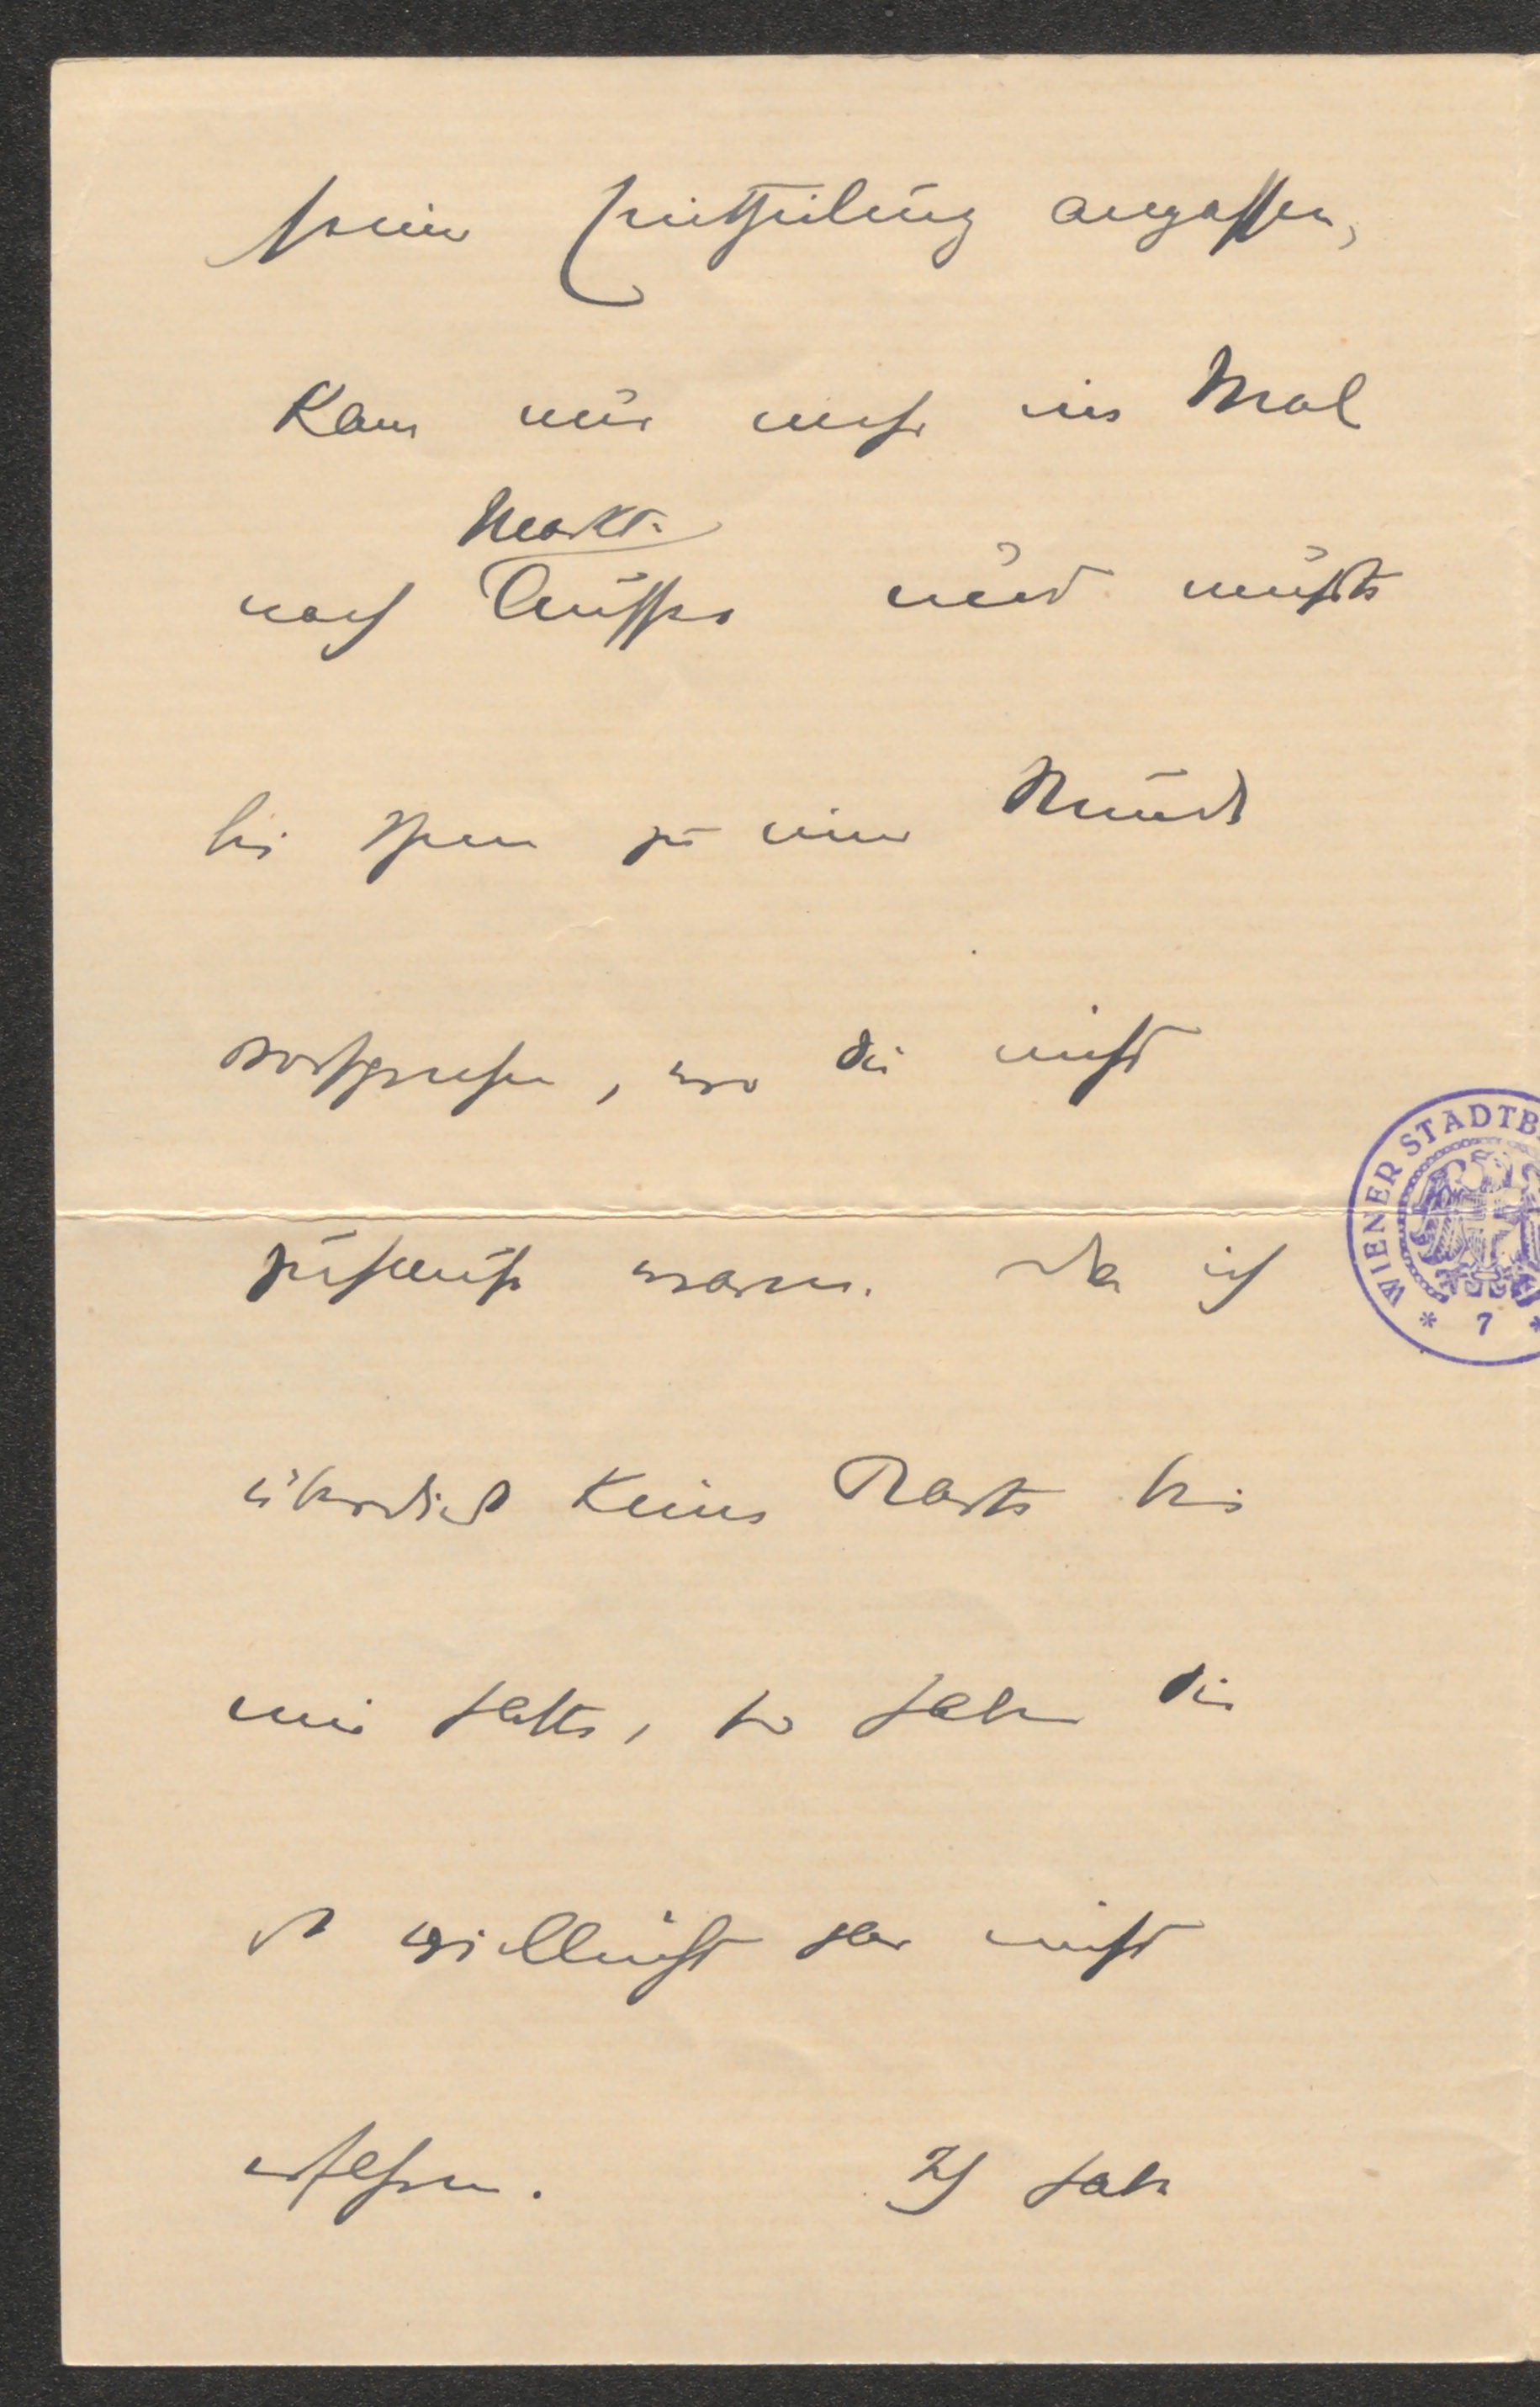 seine Mittheilung angesehen,
kam nur mehr ein Mal
Markt-
nach Aussee und mußte
bei Ihnen zu einer Stunde
vorsprechen, wo Sie nicht
zuhause waren. Da ich
überdies keine Karte bei
mir hatte, so haben Sie
es vielleicht gar nicht
erfahren. Ich habe
WIENER STADTB
* 7 *